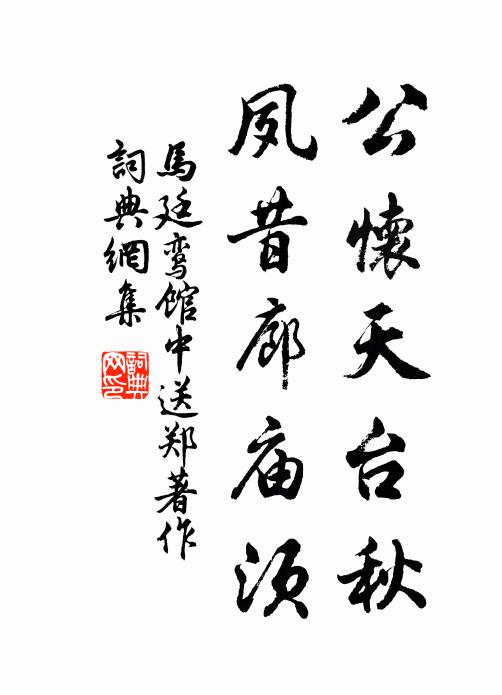 公懷天台秋
夙昔廊庙須
馬廷鸾馆中送郑著作
詞典網集
詞典网印